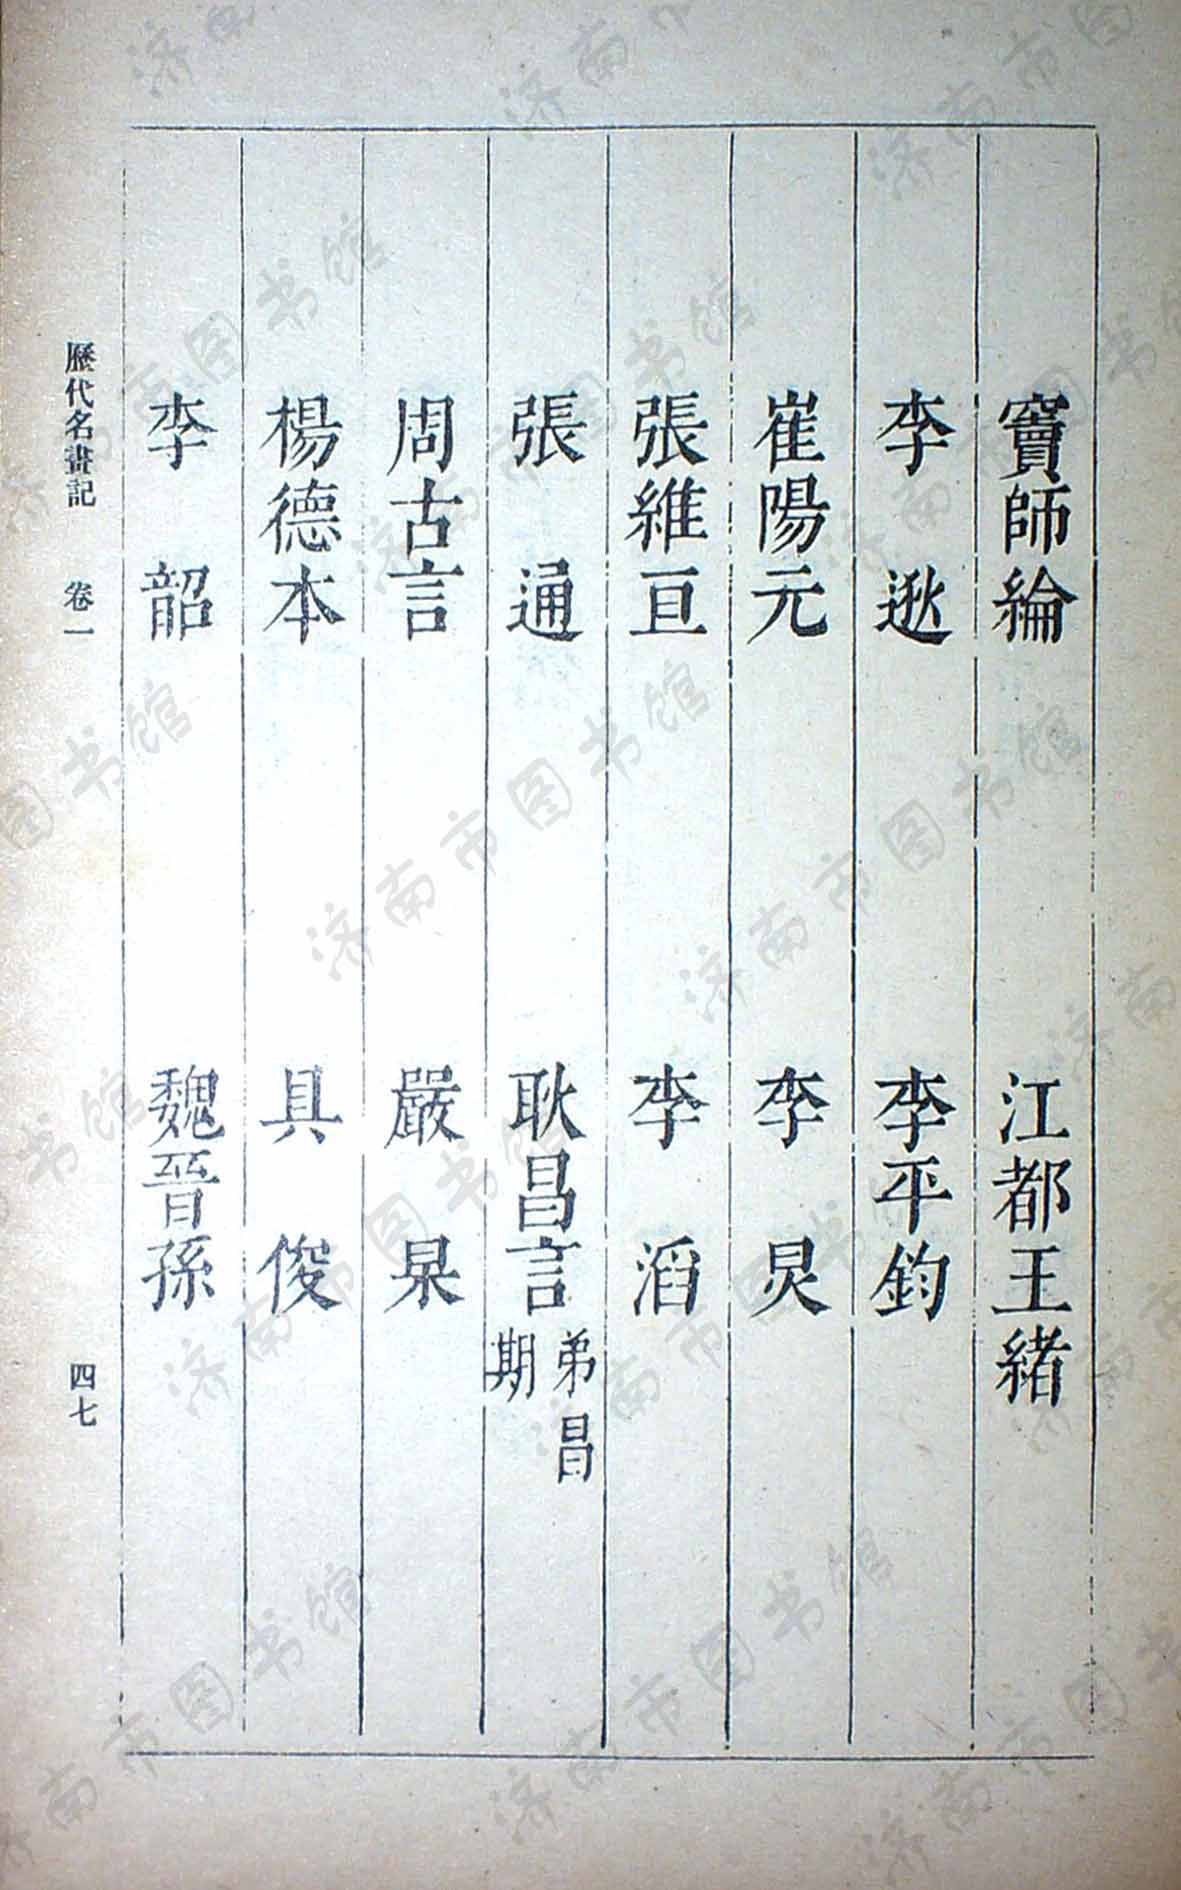 竇師綸　江都王緒
李逖　李平鈞
崔陽元　李炅
張維亘　李滔
張通　耿昌言弟昌期
周古言　嚴杲
楊德本　具俊
李韶　魏晉孫
歷代名畫記　卷一　四七
济南市图书馆